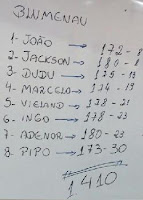 BLUMENAU
1- JOÃO → 172 - 8
2- JACKSON → 180 - 8
3- DUDU → 175 - 13
4- MARCELO → 174 - 19
5- VIELAND → 178 - 21
6- INGO → 178 - 23
7- ADENOR → 180 - 23
8- PIPO → 173 - 30
1410